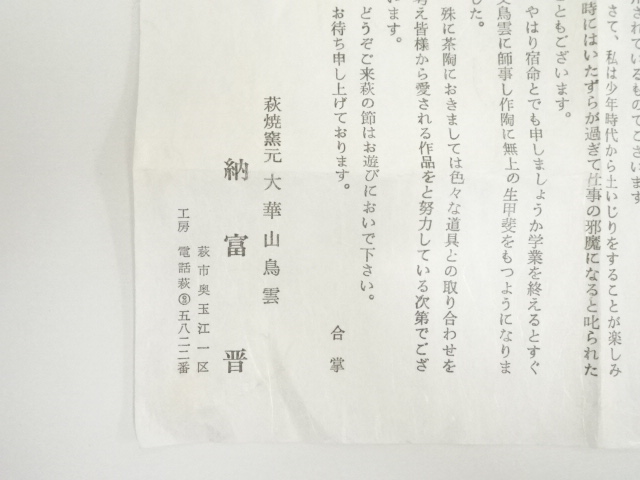 用されているものでございます
さて、私は少年時代から土いじりをすることが楽しみ
時にはいたずらが過ぎて仕事の邪魔になると叱られた
こともございます。
やはり宿命とでも申しましょうか学業を終えるとすぐ
父鳥雲に師事し作陶に無上の生甲斐をもつようになりま
した。
殊に茶陶におきましては色々な道具との取り合わせを
考え皆様から愛される作品をと努力している次第でござ
います。
どうぞご来萩の節はお遊びにおいで下さい。
お待ち申し上げております。
合掌
萩焼窯元 大華山鳥雲
納富 晋
萩市奥玉江一区
工房 電話萩②五八二二番